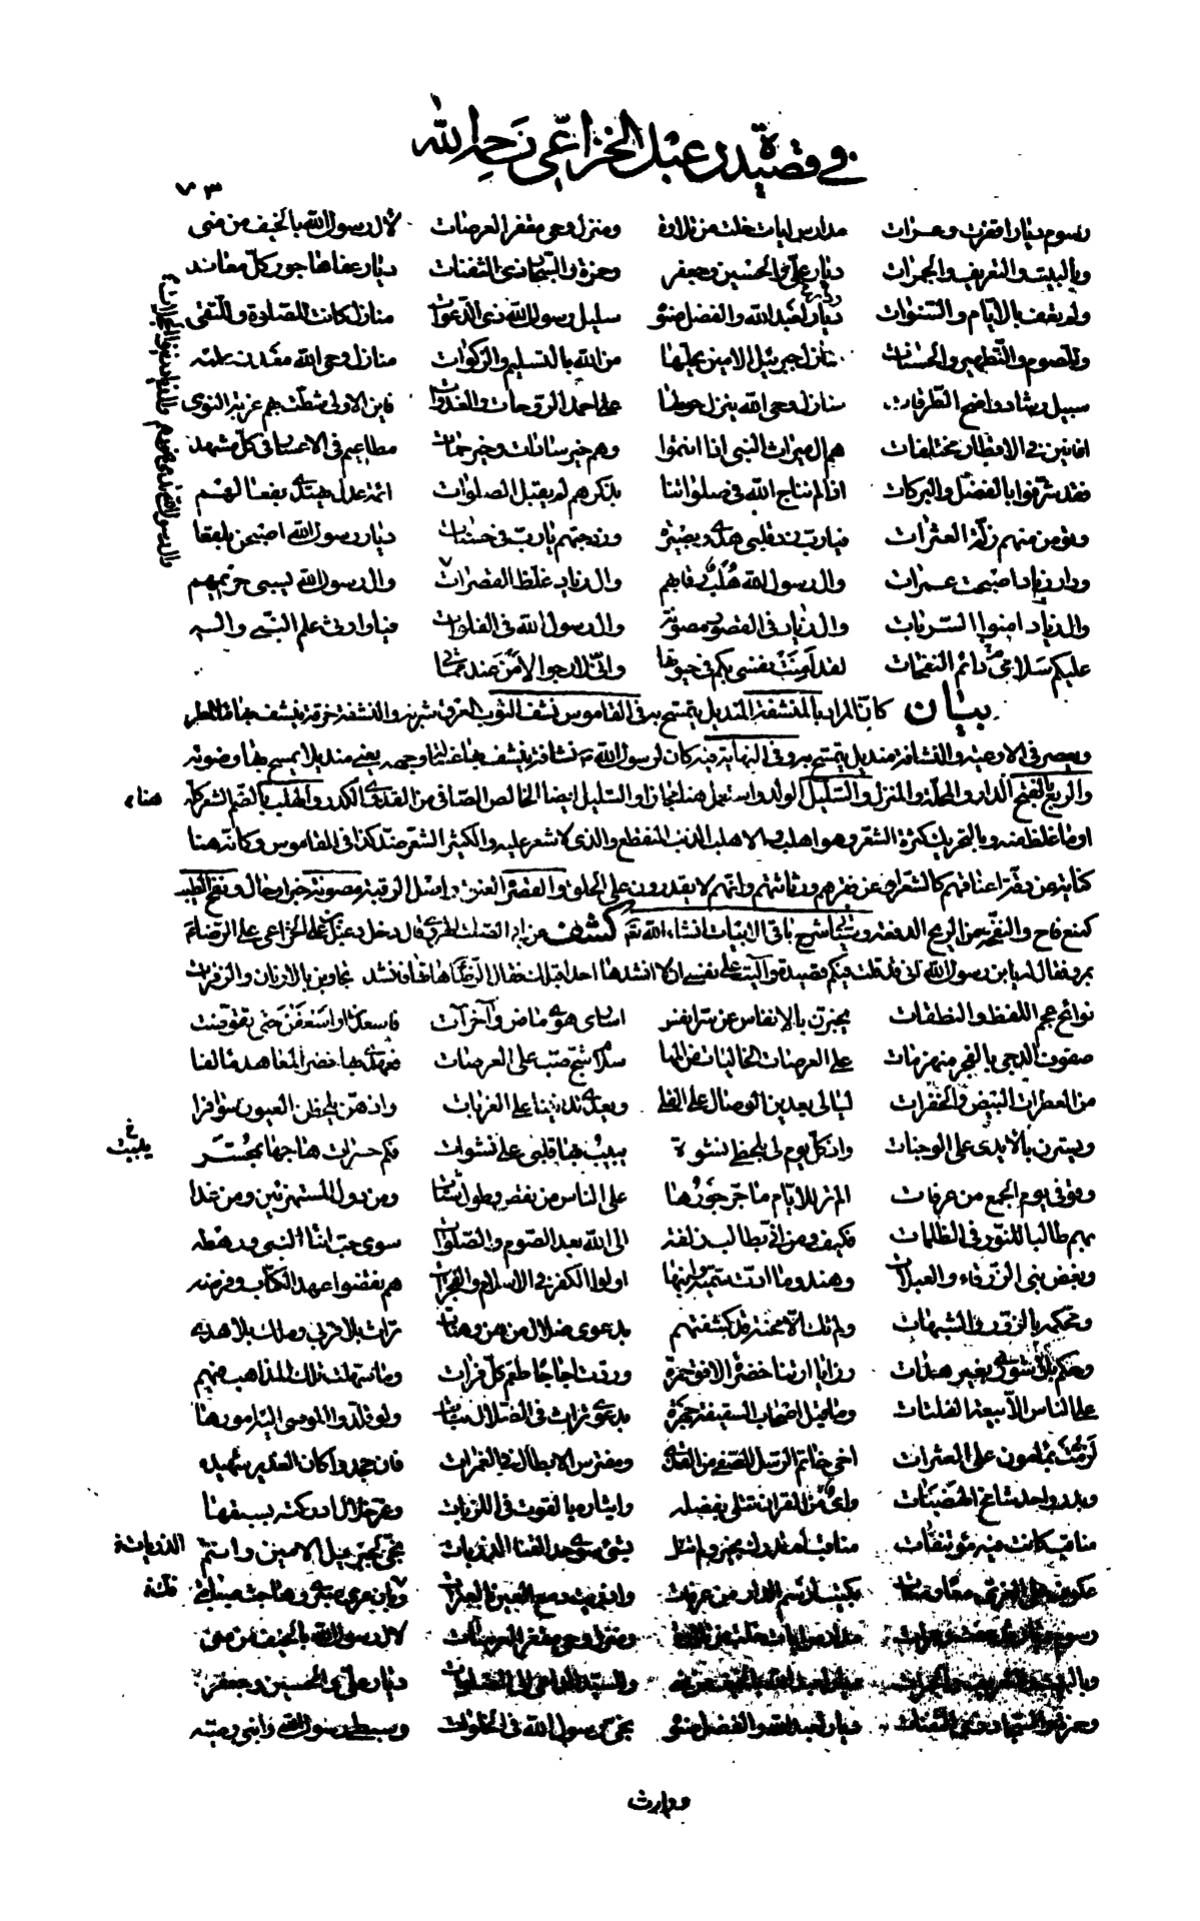 في قصيدة دعبل الخزاعي رحمه الله
٧٣
رسوم ديار اقفرت وعرات مدارس ايات خلت من تلاوة ومنزل وحي مقفر العرصات لال رسول الله بالخيف من منى
وبالبيت والتعريف والجمرات ديار علي والحسين وجعفر وحمزة والسجاد ذي الثفنات ديار عفاها جور كل معاند
ولم تعف بالايام والسنوات ديار لعبد الله والفضل صنوه سليل رسول الله ذي الدعوات منازل كانت للصلاة وللتقى
وللصوم والتطهير والحسنات منازل جبريل الامين يحلها من الله بالتسليم والزكوات منازل وحي الله معدن علمه
سبيل رشاد واضح الطرقات منازل وحي الله ينزل حولها على احمد الروحات والغدوات فاين الاولى شطت بهم غربة النوى
افانين في الاقطار مختلفات هم ال ميراث النبي اذا انتموا وهم خير سادات وخير حمات مطاعيم في الاعسار في كل مشهد
فقد شرفوا بالفضل والبركات اذا لم نناج الله في صلواتنا بذكرهم لم يقبل الصلوات ائمة عدل يهتدى بفعالهم
ونؤمن منهم زلة العثرات فيارب زد قلبي هدى وبصيرة وزد حبهم يارب في حسناتي ديار رسول الله اصبحن بلقعا
ودار زياد اصبحت عمرات وال رسول الله هلب رقابهم وال زياد غلظ القصرات وال رسول الله تسبى حريمهم
وال زياد امنوا السربات وال زياد في القصور مصونة وال رسول الله في الفلوات فيا وارثي علم النبي واله
عليكم سلامي دائم النفحات لقد امنت نفسي بكم في حيوتها واني لارجوا الامن عند مماتي
بيان كان المراد بالمنشفة المنديل يتمسح به وفي القاموس نشف الثوب العرق شربه والنشفة خرقة ينشف بها ماء المطر
ويعصر في الاوعية والنشافة منديل يتمسح به وفي النهاية فيه كان لرسول الله نشافة ينشف بها غسالة وجهه يعني منديلا يمسح بها وضوئه
والربع بالفتح الدار والمحلة والمنزل والسليل الولد واستعمل هنا مجازا والسليل ايضا الخالص الصافي من القذى والكدر والهلب بالضم الشعر كله
او ما غلظ منه وبالتحريك كثرة الشعر وهو اهلب والاهلب الذنب المنقطع والذي لا شعر عليه والكثير الشعر ضد كذا في القاموس وكانه هنا
كناية عن دقة اعناقهم كالشعر او عن فقرهم ورثاثتهم وانهم لا يقدرون على الحلق والقصرة العنق واصل الرقبة مصونة خبر او حال ونفح الطيب
كمنع فاح والنفحة من الريح الدفعة وسياتي شرح باقي الابيات انشاء الله تعالى كشف عن ابي الصلت الهروي قال دخل دعبل بن علي الخزاعي على الرضا ع
بمرو فقال له يا بن رسول الله اني قد قلت فيكم قصيدة واليت على نفسي ان لا انشدها احدا قبلك فقال الرضا هاتها فانشد تجاوبن بالارنان والزفرات
نوائح عجم اللفظ والنطقات يخبرن بالانفاس عن سر انفس اسارى هوى ماض واخر ات فاسعدن او اسعفن حتى تقوضت
صفوف الدجى بالفجر منهزمات على العرصات الخاليات من المها سلام شج صب على العرصات فعهدي بها خضر المعاهد مالفا
من العطرات البيض والخفرات ليالي يعدين الوصال على القلى ويعدي تدانينا على الغربات واذ هن يلحظن العيون سوافرا
ويسترن بالايدي على الوجنات واذ كل يوم لي بلحظي نشوة يبيت بها قلبي على نشوات فكم حسرات هاجها بمحسر
وقوفي يوم الجمع من عرفات الم تر للايام ما جر جورها على الناس من نقص وطول شتات ومن دول المستهزئين ومن غدا
بهم طالبا للنور في الظلمات فكيف ومن انى بطالب زلفة الى الله بعد الصوم والصلوات سوى حب ابناء النبي ورهطه
وبغض بني الزرقاء والعبلات وهند وما ادت سمية وابنها اولوا الكفر في الاسلام والفجرات هم نقضوا عهد الكتاب وفرضه
ومحكمه بالزور والشبهات ولم تك الا محنة قد كشفتهم بدعوى ضلال من هن وهنات تراث بلا قربى وملك بلا هدى
وحكم بلا شورى بغير هدات رزايا ارتنا خضرة الافق حمرة وردت اجاجا طعم كل فرات وما سهلت تلك المذاهب فيهم
على الناس الا بيعة الفلتات وما قيل اصحاب السقيفة جهرة بدعوى تراث في الضلال نتات ولو قلدوا الموصى اليه امورها
لزمت بمامون على العثرات اخي خاتم الرسل المصفى من القذى ومفترس الابطال في الغمرات فان جحدوا كان الغدير شهيده
وبدر واحد شامخ الهضبات واي من القران تتلى بفضله وايثاره بالقوت في اللزبات وعز خلال ادركته بسبقها
مناقب كانت فيه مؤتنفات مناقب لم تدرك بخير ولم تنل بشيء سوى حد القنا الذربات نجي لجبريل الامين وانتم
عكوف على العزى معا ومنات بكيت لرسم الدار من عرفات واذريت دمع العين بالعبرات وبان عرى صبري وهاجت صبابتي
رسوم ديار قد عفت وعرات مدارس ايات خلت من تلاوة ومنزل وحي مقفر العرصات لال رسول الله بالخيف من منى
وبالبيت والتعريف والجمرات ديار لعبد الله بالخيف من منى وللسيد الداعي الى الصلوات ديار علي والحسين وجعفر
وحمزة والسجاد ذي الثفنات ديار لعبد الله والفضل صنوه نجي رسول الله في الخلوات وسبطي رسول الله وابني وصيه
ووارث
هناء
يبيت
الذربات